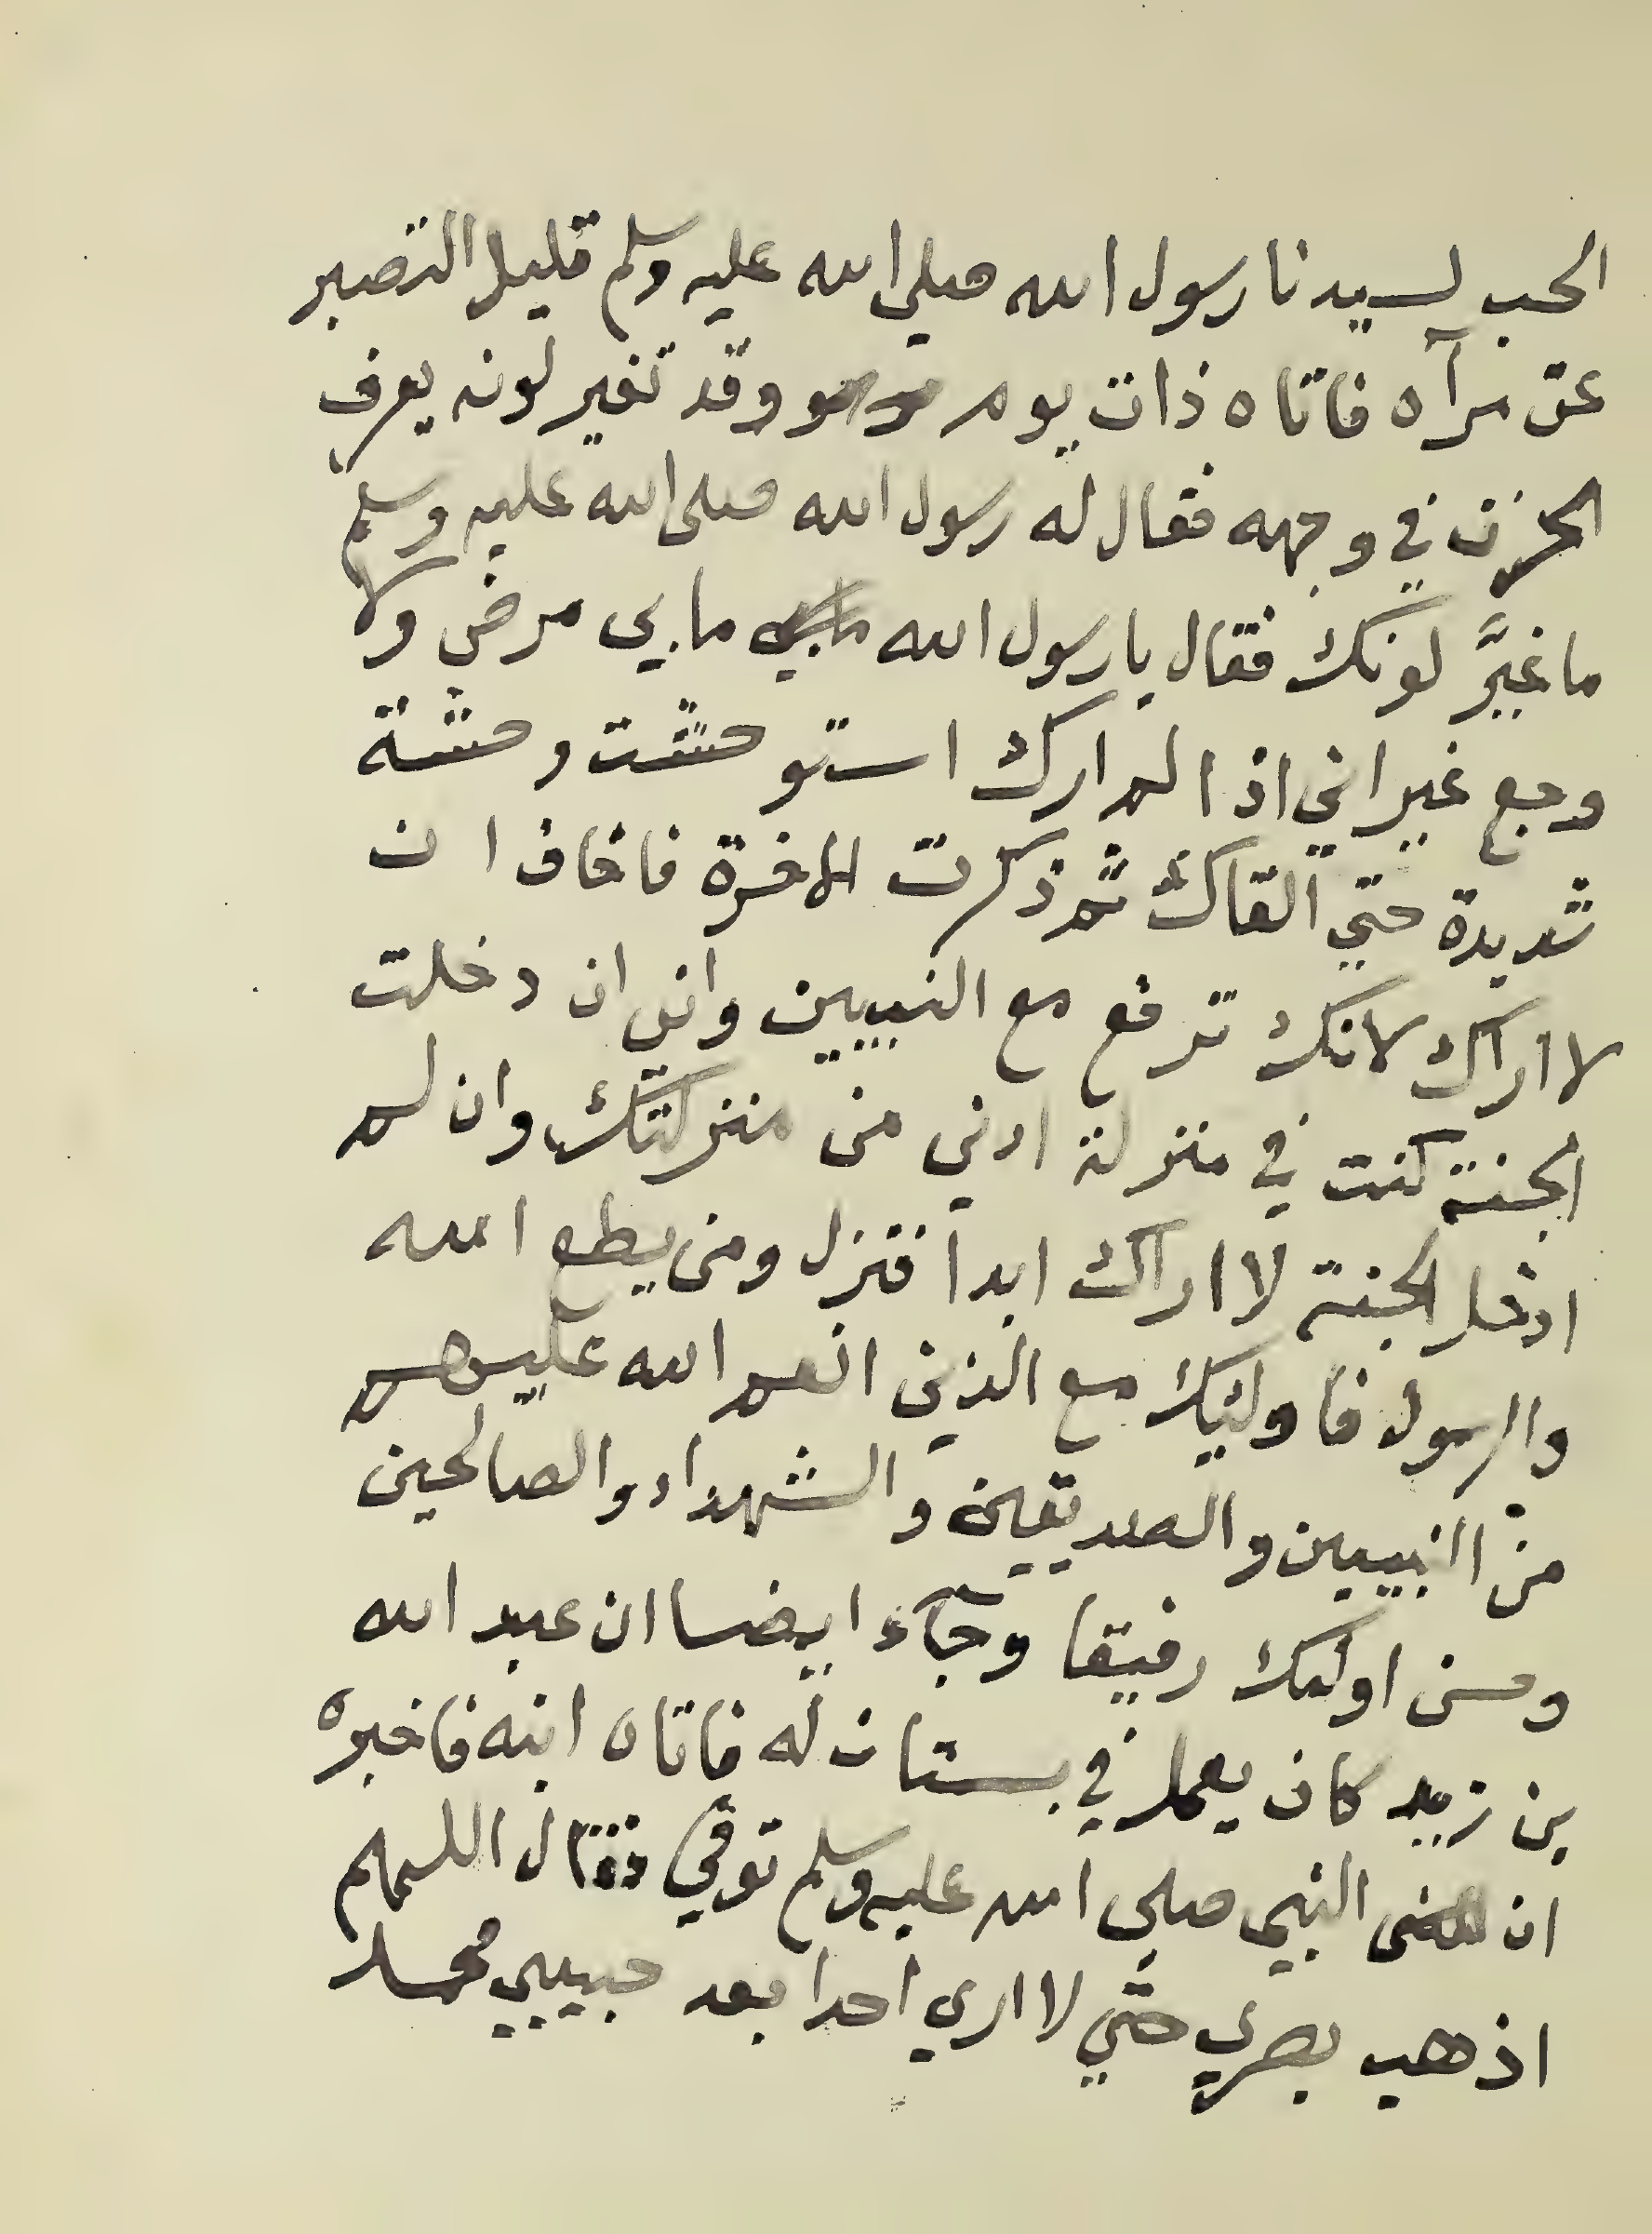 الحب لسيدنا رسول الله صلي الله عليه وسلم قليل التصبر
عن مرآه فاتاه ذات يوم وقد تغير لونه يعرف
الحزن في وجهه فقال له رسول الله صلى الله عليه وسلم
ما غيَّر لونك فقال يا رسول الله ما بي مرض ولا
وجع غير اني اذا لم ارك استوحشت وحشة
شديدة حتي القاك ثم ذكرت الاخرة فاخاف ان
لا اراك لانك ترفع مع النبيين واني ان دخلت
الجنة كنت في منزلة ادني من منزلتك وان لم
ادخل الجنة لا اراك ابدا فنزل ومن يطع الله
والرسول فاوليك مع الذين انعم الله عليهم
من النبيين والصديقين والشهداء والصالحين
وحسن اولئك رفيقا وجآء ايضا ان عبد الله
بن زيد كان يعمل في بستان له فاتاه ابنه فاخبره
ان النبي صلي الله عليه وسلم توفي فقال اللهم
اذهب بصري حتي لا اري احدا بعد حبيبي محمد